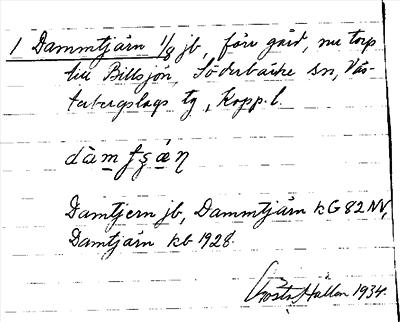 1 Dammtjärn 1/8 jb, förr gård, nu torp
till Billsjön, Söderbärke sn, Väs-
terbergslags tg, Kopp. l.
Damtjern jb, Dammtjärn kG 82 NV,
Damtjärn kb 1928.
Gösta Hallon 1934.